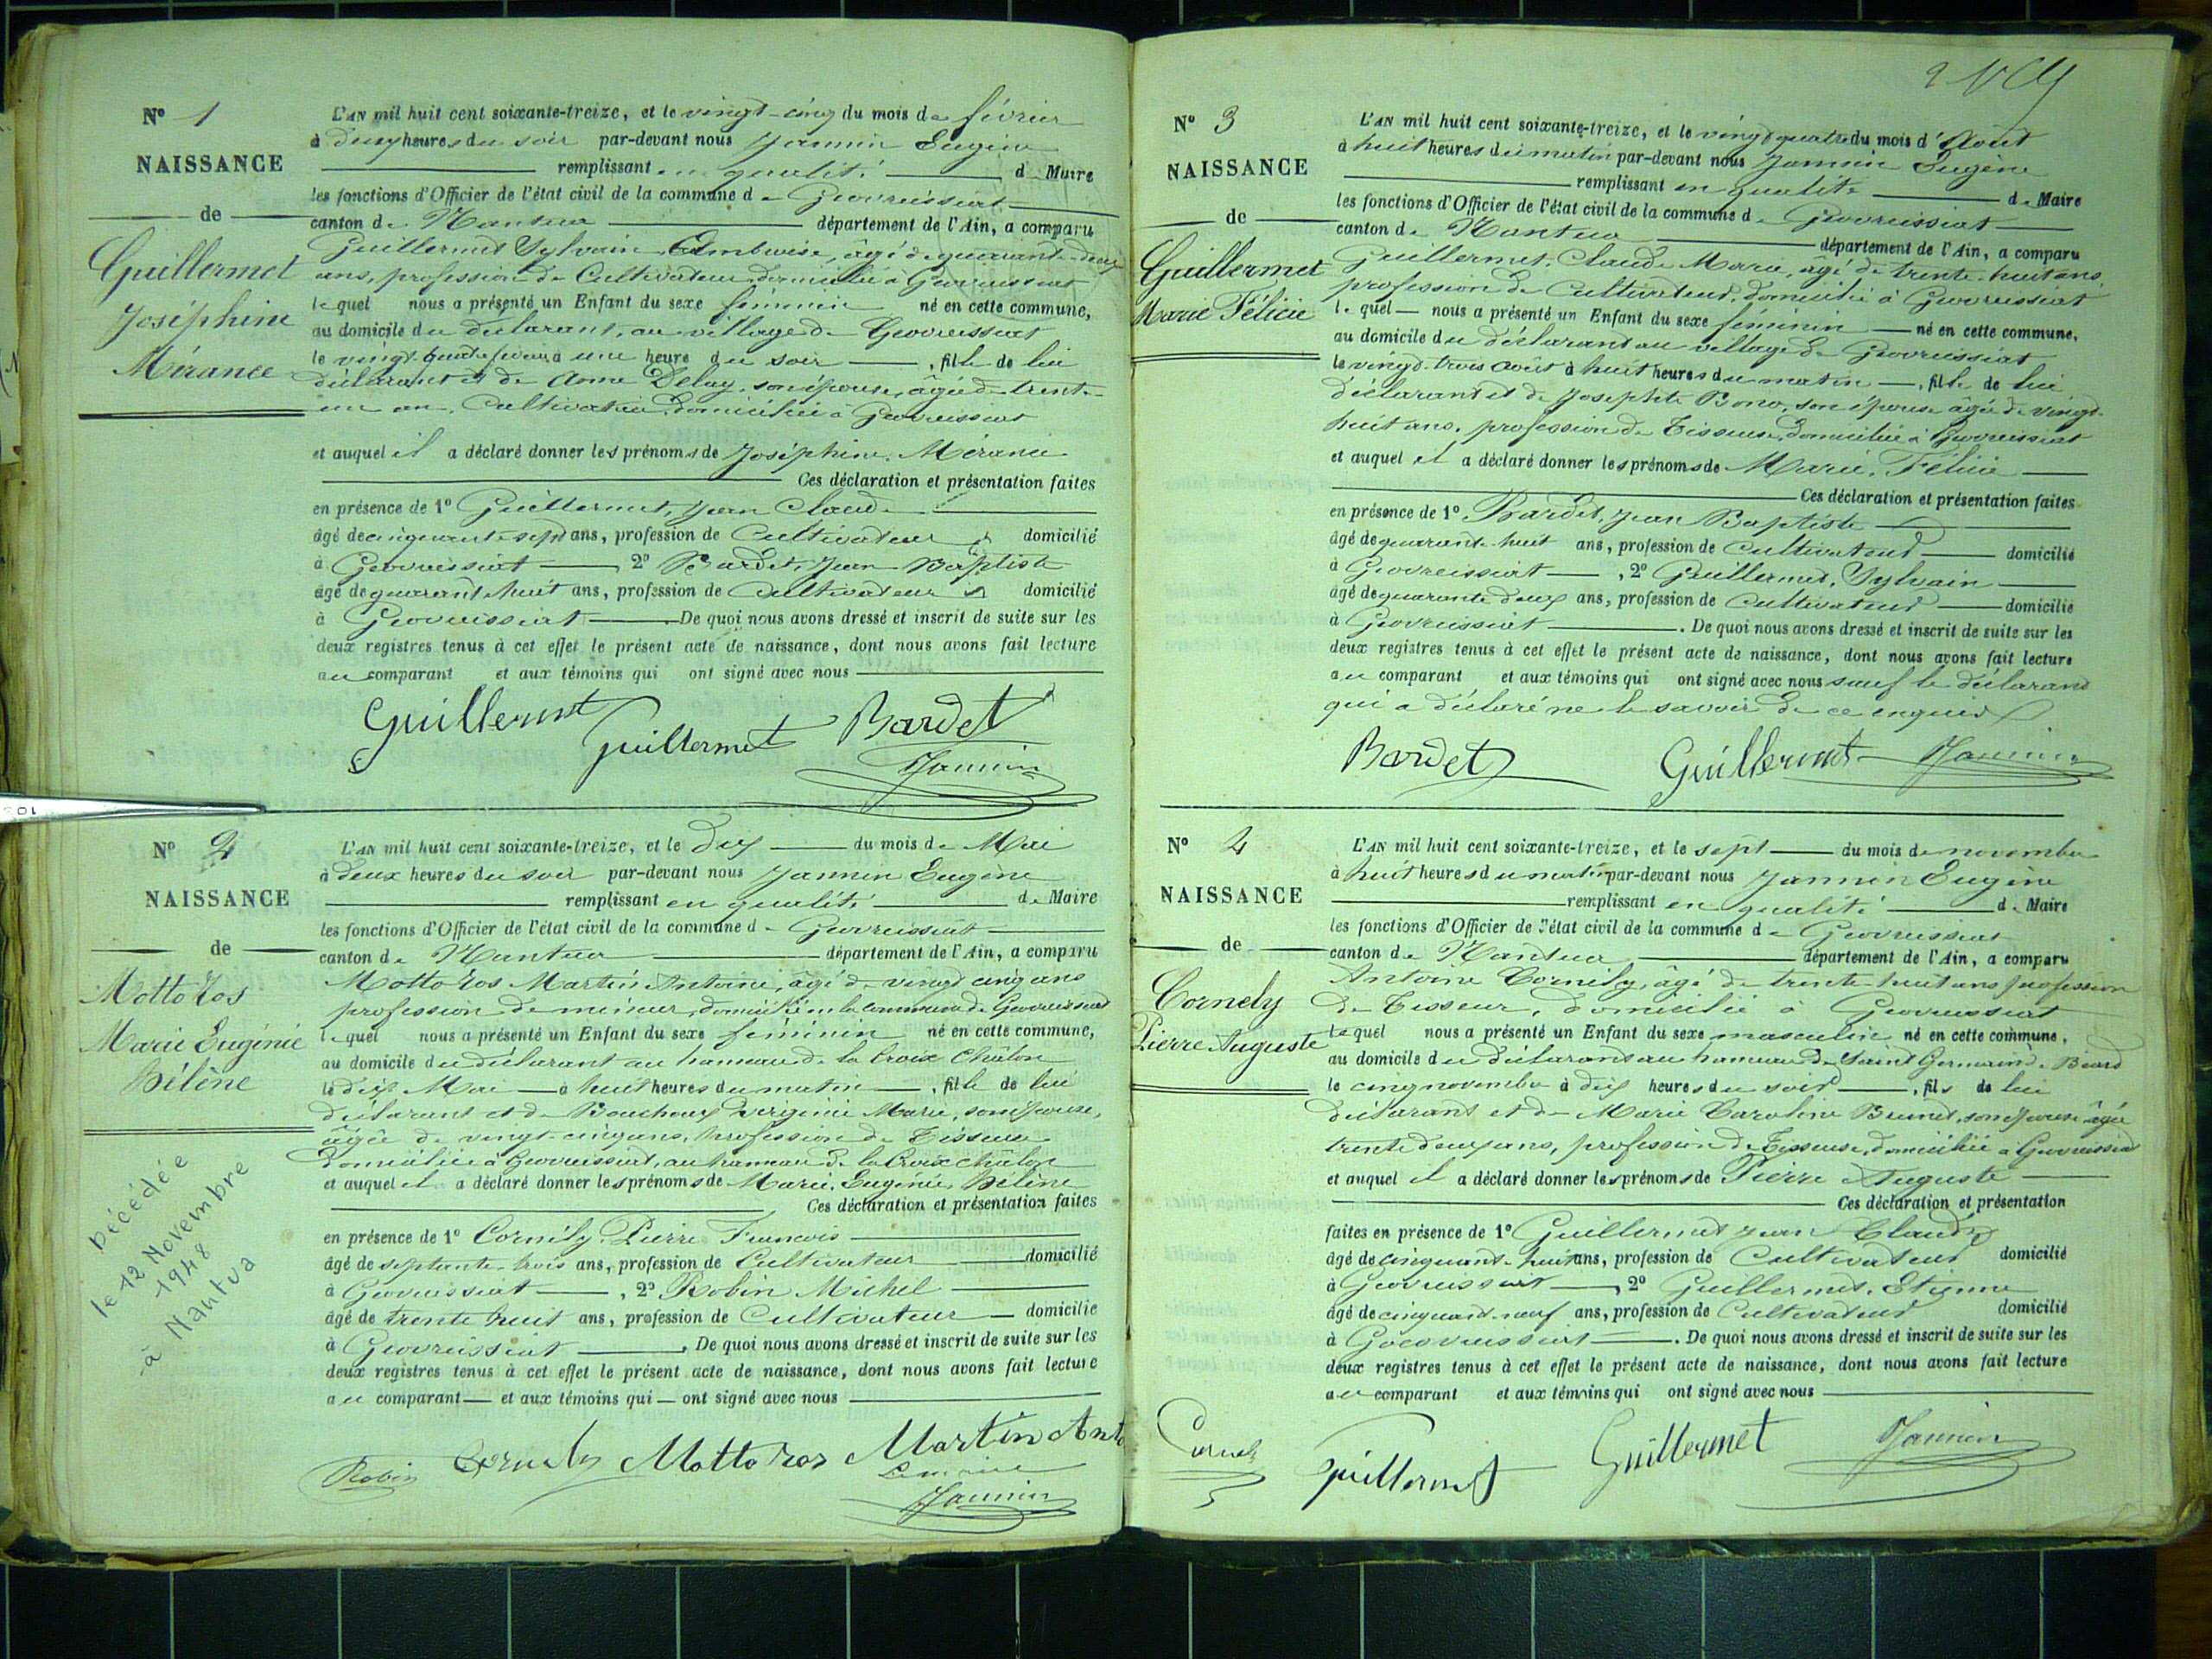 N° 1
NAISSANCE
de
Guillermet
Joséphine
Mérance
L'AN mil huit cent soixante-treize, et le vingt-cinq du mois de février
à deux heures du soir par-devant nous Jannin Eugène
remplissant en qualité de Maire
les fonctions d'Officier de l'état civil de la commune de Geovreissiat
canton de Nantua département de l'Ain, a comparu
Guillermet Sylvain Ambroise, âgé de quarante-deux
ans, profession de Cultivateur, domicilié à Geovreissiat
lequel nous a présenté un Enfant du sexe féminin né en cette commune,
au domicile du déclarant, au village de Geovreissiat
le vingt-quatre février à une heure du soir, fille de lui
déclarant et de Anne Delay, son épouse, âgée de trente-
un an, Cultivatrice, domiciliée à Geovreissiat
et auquel il a déclaré donner les prénoms de Joséphine, Mérance
Ces déclaration et présentation faites
en présence de 1° Guillermet, Jean Claude
âgé de cinquante-sept ans, profession de Cultivateur domicilié
à Geovreissiat, 2° Bardet, Jean Baptiste
âgé de quarante huit ans, profession de Cultivateur domicilié
à Geovreissiat. De quoi nous avons dressé et inscrit de suite sur les
deux registres tenus à cet effet le présent acte de naissance, dont nous avons fait lecture
au comparant et aux témoins qui ont signé avec nous
Guillermet Guillermet Bardet
Jannin
N° 2
NAISSANCE
de
Motto ros
Marie Eugénie
Hélène
Décédée
le 12 Novembre
1948
à Nantua
L'AN mil huit cent soixante-treize, et le dix du mois de Mai
à deux heures du soir par-devant nous Jannin Eugène
remplissant en qualité de Maire
les fonctions d'Officier de l'état civil de la commune de Geovreissiat
canton de Nantua département de l'Ain, a comparu
Motto ros Martin Antoine, âgé de vingt cinq ans
profession de mineur, domicilié en la commune de Geovreissiat
lequel nous a présenté un Enfant du sexe féminin né en cette commune,
au domicile du déclarant au hameau de la Croix Châlon
le dix Mai à huit heures du matin, fille de lui
déclarant et de Bouchoux Virginie Marie, son épouse,
âgée de vingt-cinq ans, profession de Tisseuse
domiciliée à Geovreissiat, au hameau de la Croix châlon
et auquel il a déclaré donner les prénoms de Marie, Eugénie, Hélène
Ces déclaration et présentation faites
en présence de 1° Cornély Pierre François
âgé de septante-trois ans, profession de Cultivateur domicilié
à Geovreissiat, 2° Robin Michel
âgé de trente huit ans, profession de Cultivateur domicilié
à Geovreissiat. De quoi nous avons dressé et inscrit de suite sur les
deux registres tenus à cet effet le présent acte de naissance, dont nous avons fait lecture
au comparant et aux témoins qui ont signé avec nous
Robin Cornely Motto ros Martin Anto
Le maire
Jannin
2
N° 3
NAISSANCE
de
Guillermet
Marie Félicie
L'AN mil huit cent soixante-treize, et le vingt quatre du mois d'Août
à huit heures du matin par-devant nous Jannin Eugène
remplissant en qualité de Maire
les fonctions d'Officier de l'état civil de la commune de Geovreissiat
canton de Nantua département de l'Ain, a comparu
Guillermet, Claude Marie, âgé de trente-huit ans,
profession de Cultivateur, domicilié à Geovreissiat
lequel nous a présenté un Enfant du sexe féminin né en cette commune,
au domicile du déclarant au village de Geovreissiat
le vingt-trois août à huit heures du matin, fille de lui
déclarant et de Josephte Bono, son épouse âgée de vingt-
huit ans, profession de Tisseuse, domiciliée à Geovreissiat
et auquel il a déclaré donner les prénoms de Marie, Félicie
Ces déclaration et présentation faites
en présence de 1° Bardet, Jean Baptiste
âgé de quarante-huit ans, profession de Cultivateur domicilié
à Geovreissiat, 2° Guillermet, Sylvain
âgé de quarante deux ans, profession de Cultivateur domicilié
à Geovreissiat. De quoi nous avons dressé et inscrit de suite sur les
deux registres tenus à cet effet le présent acte de naissance, dont nous avons fait lecture
au comparant et aux témoins qui ont signé avec nous sauf le déclarant
qui a déclaré ne le savoir de ce enquis
Bardet Guillermet Jannin
N° 4
NAISSANCE
de
Cornely
Pierre Auguste
L'AN mil huit cent soixante-treize, et le sept du mois de novembre
à huit heures du matin par-devant nous Jannin Eugène
remplissant en qualité de Maire
les fonctions d'Officier de l'état civil de la commune de Geovreissiat
canton de Nantua département de l'Ain, a comparu
Antoine Cornély, âgé de trente-huit ans profession
de Tisseur, domicilié à Geovreissiat
lequel nous a présenté un Enfant du sexe masculin né en cette commune,
au domicile du déclarant au hameau de Saint Germain de Béard
le cinq novembre à dix heures du soir, fils de lui
déclarant et de Marie Caroline Brunet, son épouse âgée
trente deux ans, profession de Tisseuse, domiciliée à Geovreissiat
et auquel il a déclaré donner les prénoms de Pierre Auguste
Ces déclaration et présentation
faites en présence de 1° Guillermet Jean Claude
âgé de cinquante-huit ans, profession de Cultivateur domicilié
à Geovreissiat, 2° Guillermet, Etienne
âgé de cinquante-neuf ans, profession de Cultivateur domicilié
à Geovreissiat. De quoi nous avons dressé et inscrit de suite sur les
deux registres tenus à cet effet le présent acte de naissance, dont nous avons fait lecture
au comparant et aux témoins qui ont signé avec nous
Cornely Guillermet Guillermet Jannin